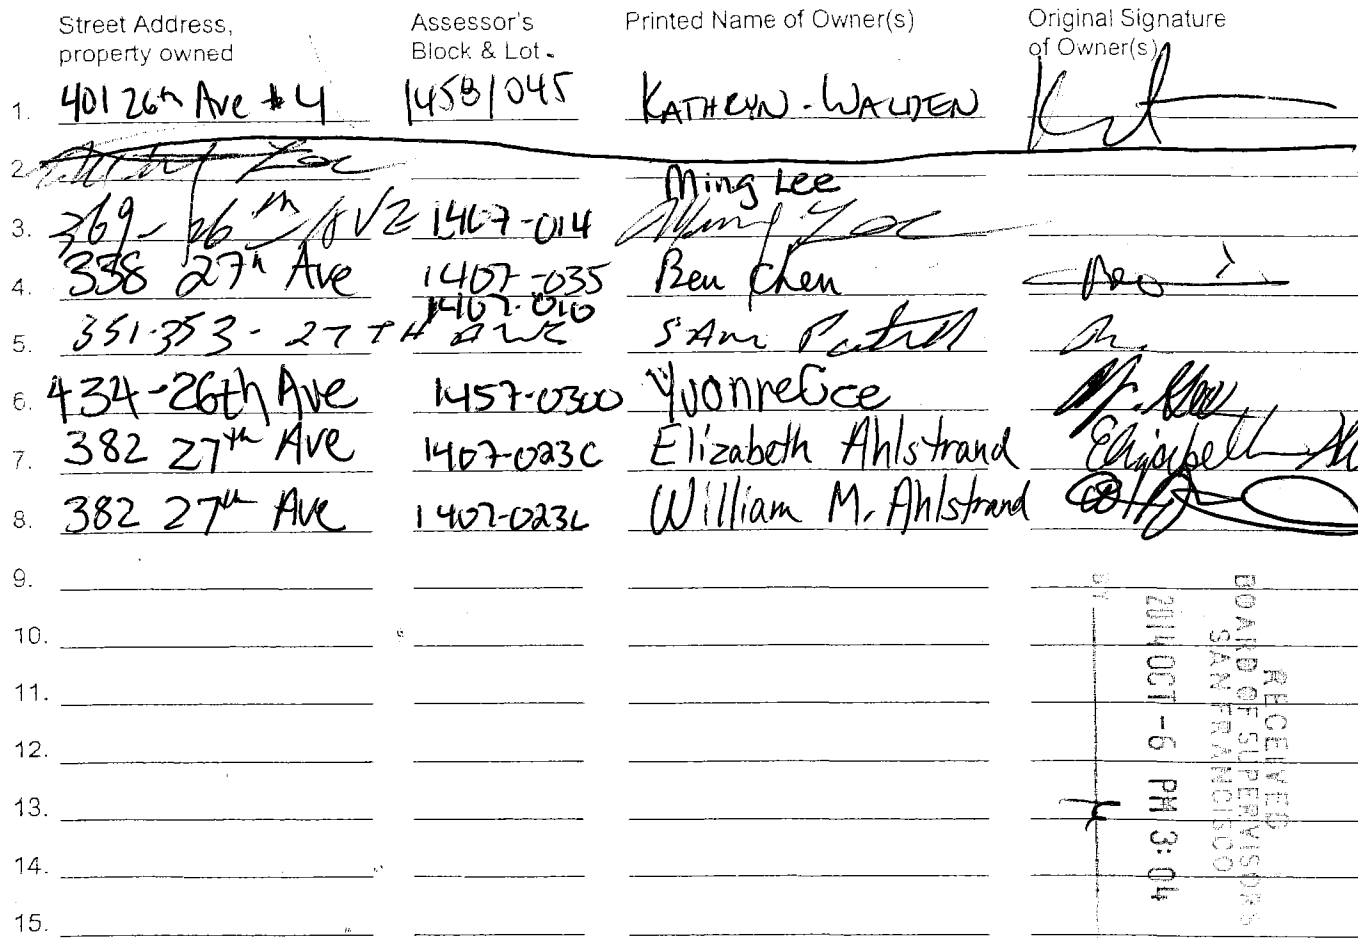 Street Address, property owned
Assessor's Block & Lot
Printed Name of Owner(s)
Original Signature of Owner(s)
1. 401 26th Ave #4 1458/045 KATHRYN WALDEN
2.
Ming Lee
3. 369- 26th AVE 1407-014
4. 338 27th Ave 1407-035 Ben Chen
1407-010
5. 351-353-27TH AVE SAm
6. 434-26th Ave 1457-0300
7. 382 27th Ave 1407-023C Elizabeth Ahlstrand
8. 382 27th Ave 1407-023C William M. Ahlstrand
9.
10.
11.
12.
13.
14.
15.
RECEIVED
BOARD OF SUPERVISORS
SAN FRANCISCO
2014 OCT -6 PM 3:04
BY